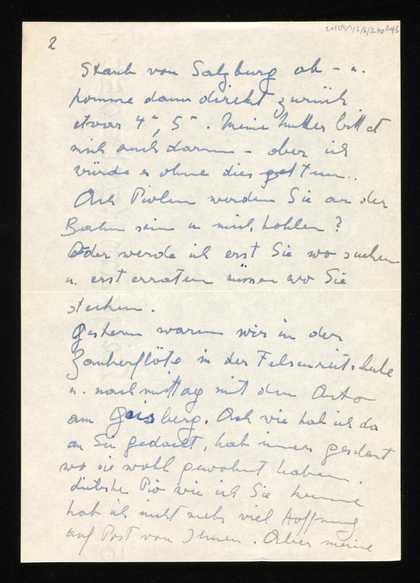 2
Staub von Salzburg ab - u.
komme dann direkt zurück
etwas 4", 5". Meine Mutter bittet
mich auch darum - aber ich
würde es ohne dies tun..
Ach werden Sie an der
Bahn sein u mich hohlen?
Oder werde ich erst Sie wo suchen
u. erst erraten müssen wo Sie
stecken.
Gestern waren wir in der
Zauberflöte in der Felsenreitschule
u. nachmittag mit dem Auto
am Geisberg. Ach wie hab ich da
an Sie gedacht, hab immer gedacht
wo sie wohl gewohnt haben.
wie ich Sie kenne
hab ich nicht mehr viel Hoffnung
auf Post von Ihnen. Aber meine